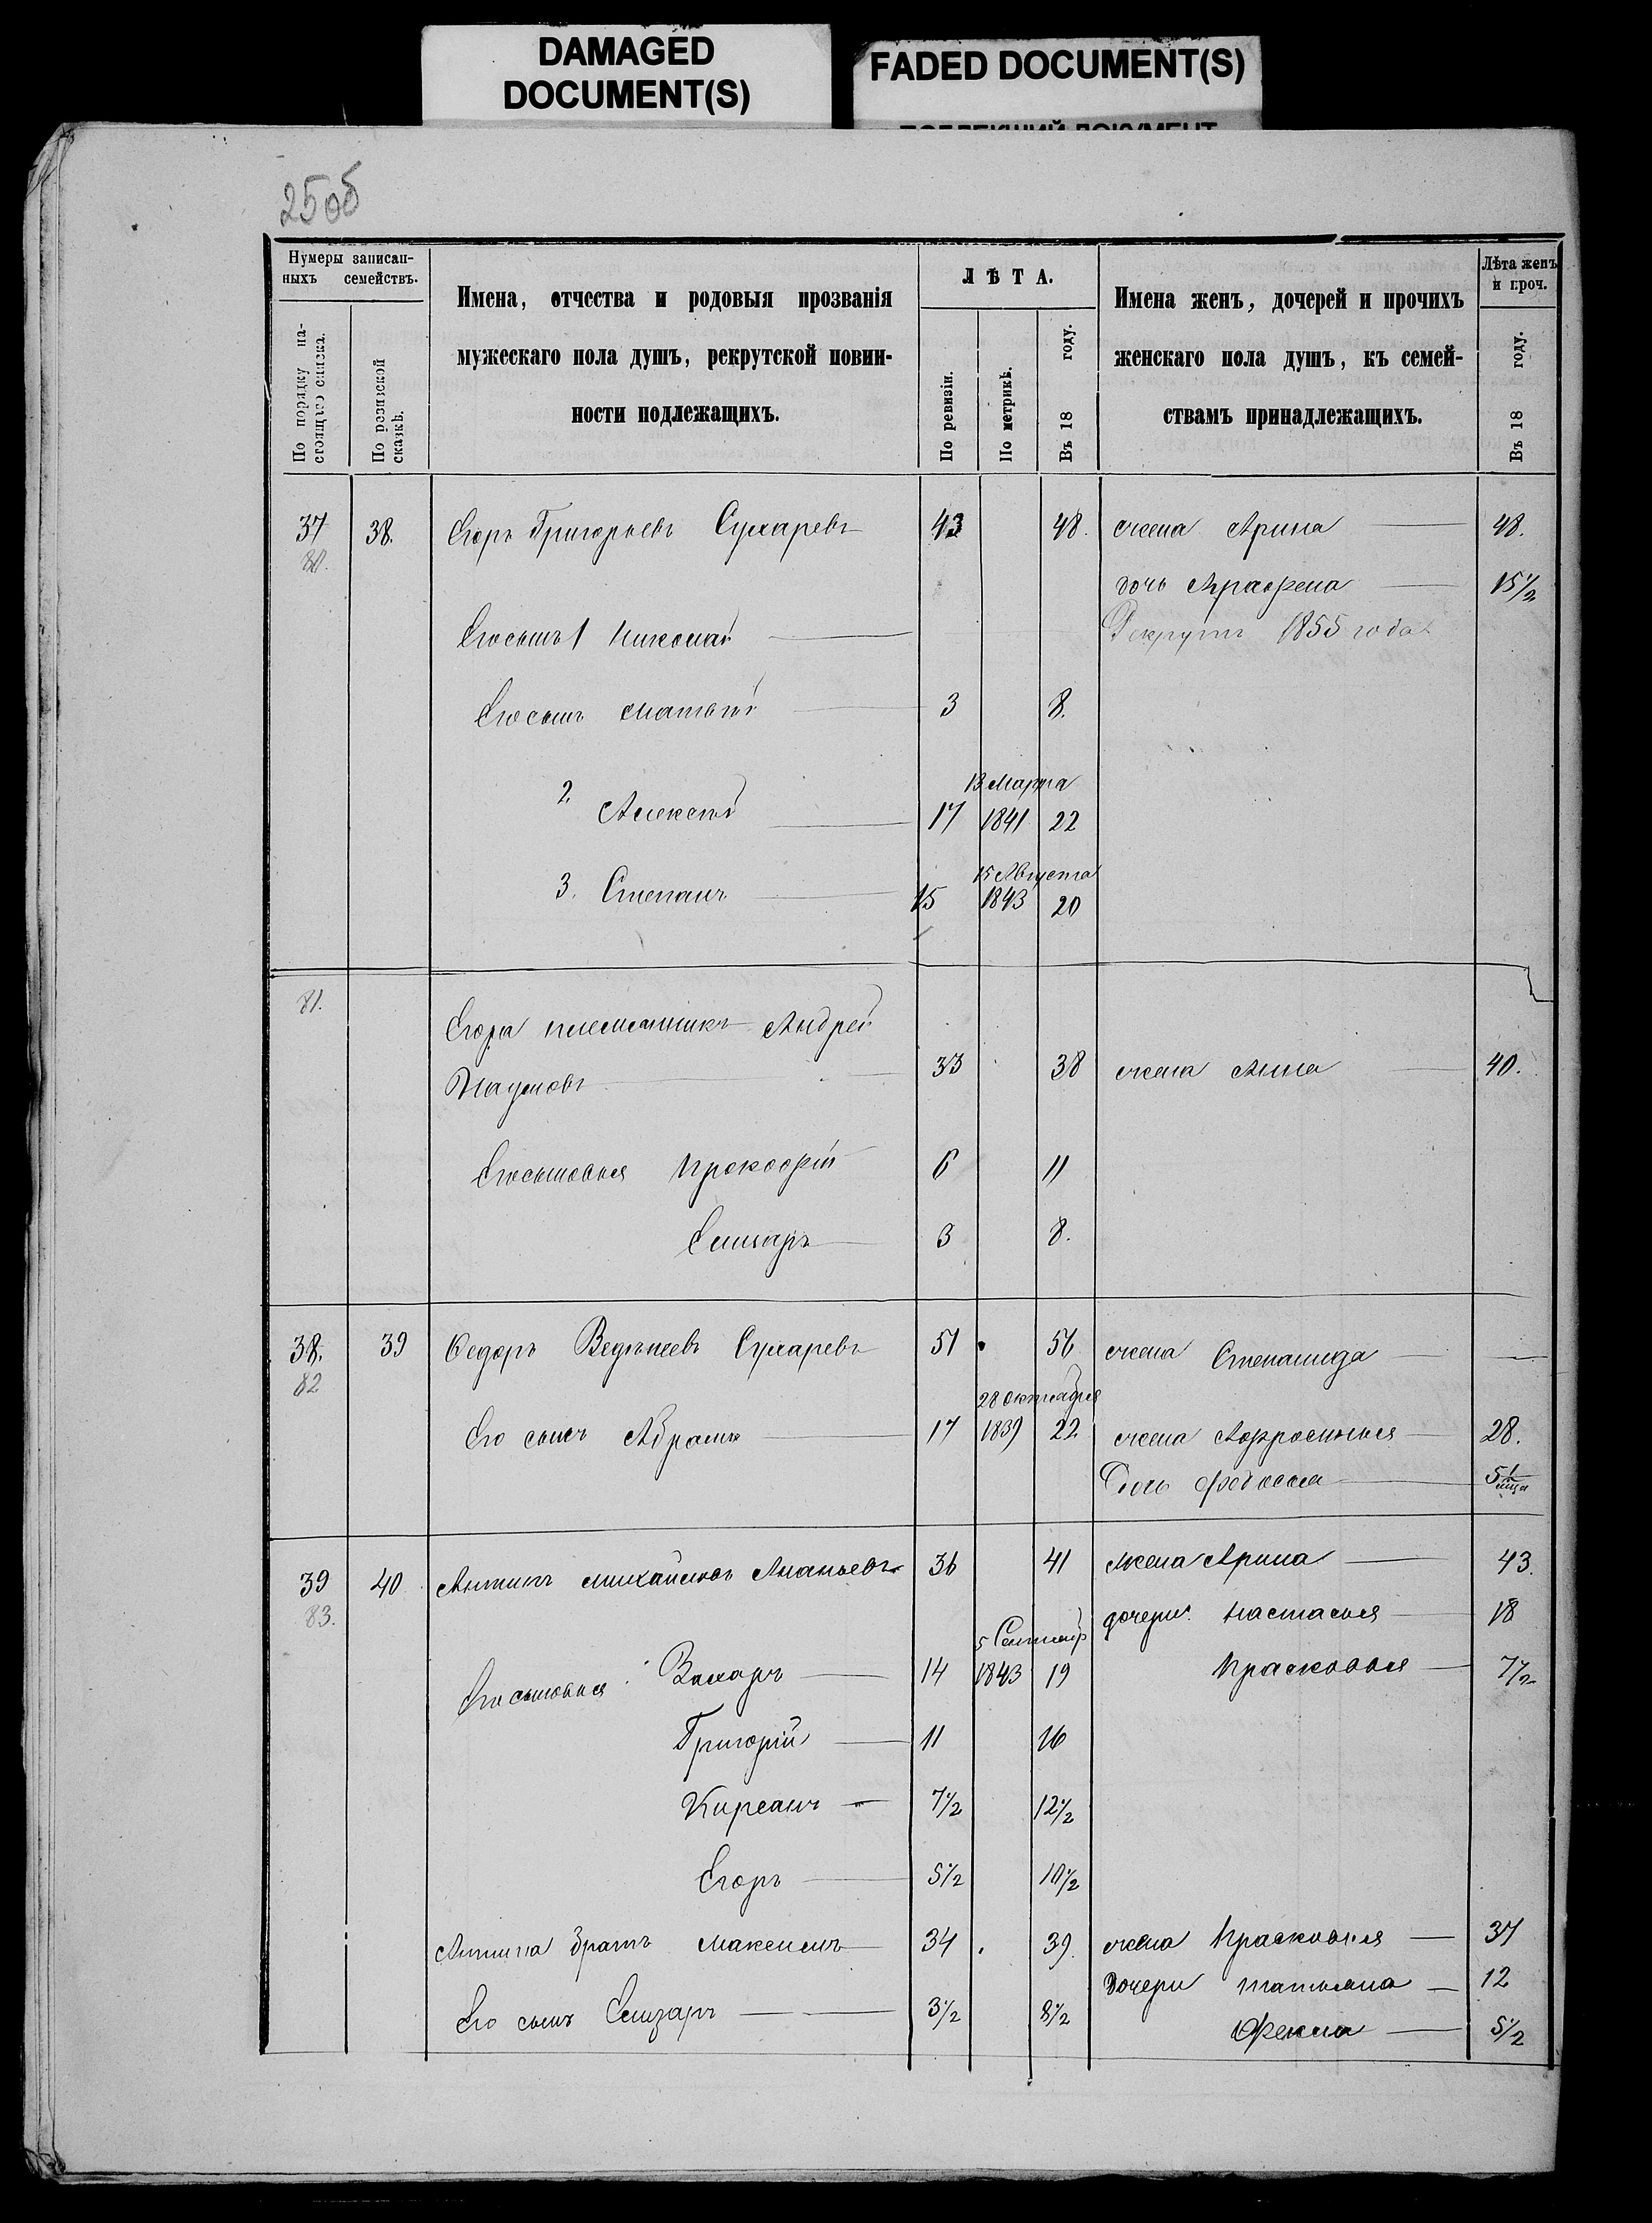 DAMAGED
DOCUMENT(S)
FADED DOCUMENT(S)
25об
Нумеры записан-
ныхъ семействъ.
По порядку на-
стоящаго списка.
По ревизской
сказкѣ.
Имена, отчества и родовыя прозванія
мужескаго пола душъ, рекрутской повин-
ности подлежащихъ.
ЛѢТА.
По ревизіи.
По метрикѣ.
Въ 18 году.
Имена женъ, дочерей и прочихъ
женскаго пола душъ, къ семей-
ствамъ принадлежащихъ.
Лѣта женъ
и проч.
Въ 18 году.
37 38. Егоръ Григорьевъ Сухаревъ 43 48. жена Арина 48.
80.
дочь Аграфена 15 1/2
Его сынъ 1 Николай Рекрутъ 1855 года
Его сынъ Матвѣй 3 8.
13 Марта
2 Алексѣй 17 1841 22
15 Августа
3. Степанъ 15 1843 20
81.
Егора племянникъ Андрей
Наумовъ 33 38 жена Анна 40.
Его сыновья Прокофій 6 11
Елизаръ 3 8.
38. 39 Федоръ Ведѣнеевъ Сухаревъ 51 56 жена Степанида
82
28 октября
Его сынъ Абрамъ 17 1839 22 жена Афросинья 28.
Дочь Федосья
39 40 Антипъ Михайловъ Ананьевъ 36 41 жена Арина 43.
83.
дочери: Настасья 18
5 Сентяб
Его сыновья: Захаръ 14 1843 19 Прасковья 7 1/2
Григорій 11 16
Кирсанъ 7 1/2 12 1/2
Егоръ 5 1/2 10 1/2
Антипа братъ Максимъ 34 39. жена Прасковья 37
дочери Татьяна 12
Его сынъ Елизаръ 3 1/2 8 1/2
Фекла 5 1/2